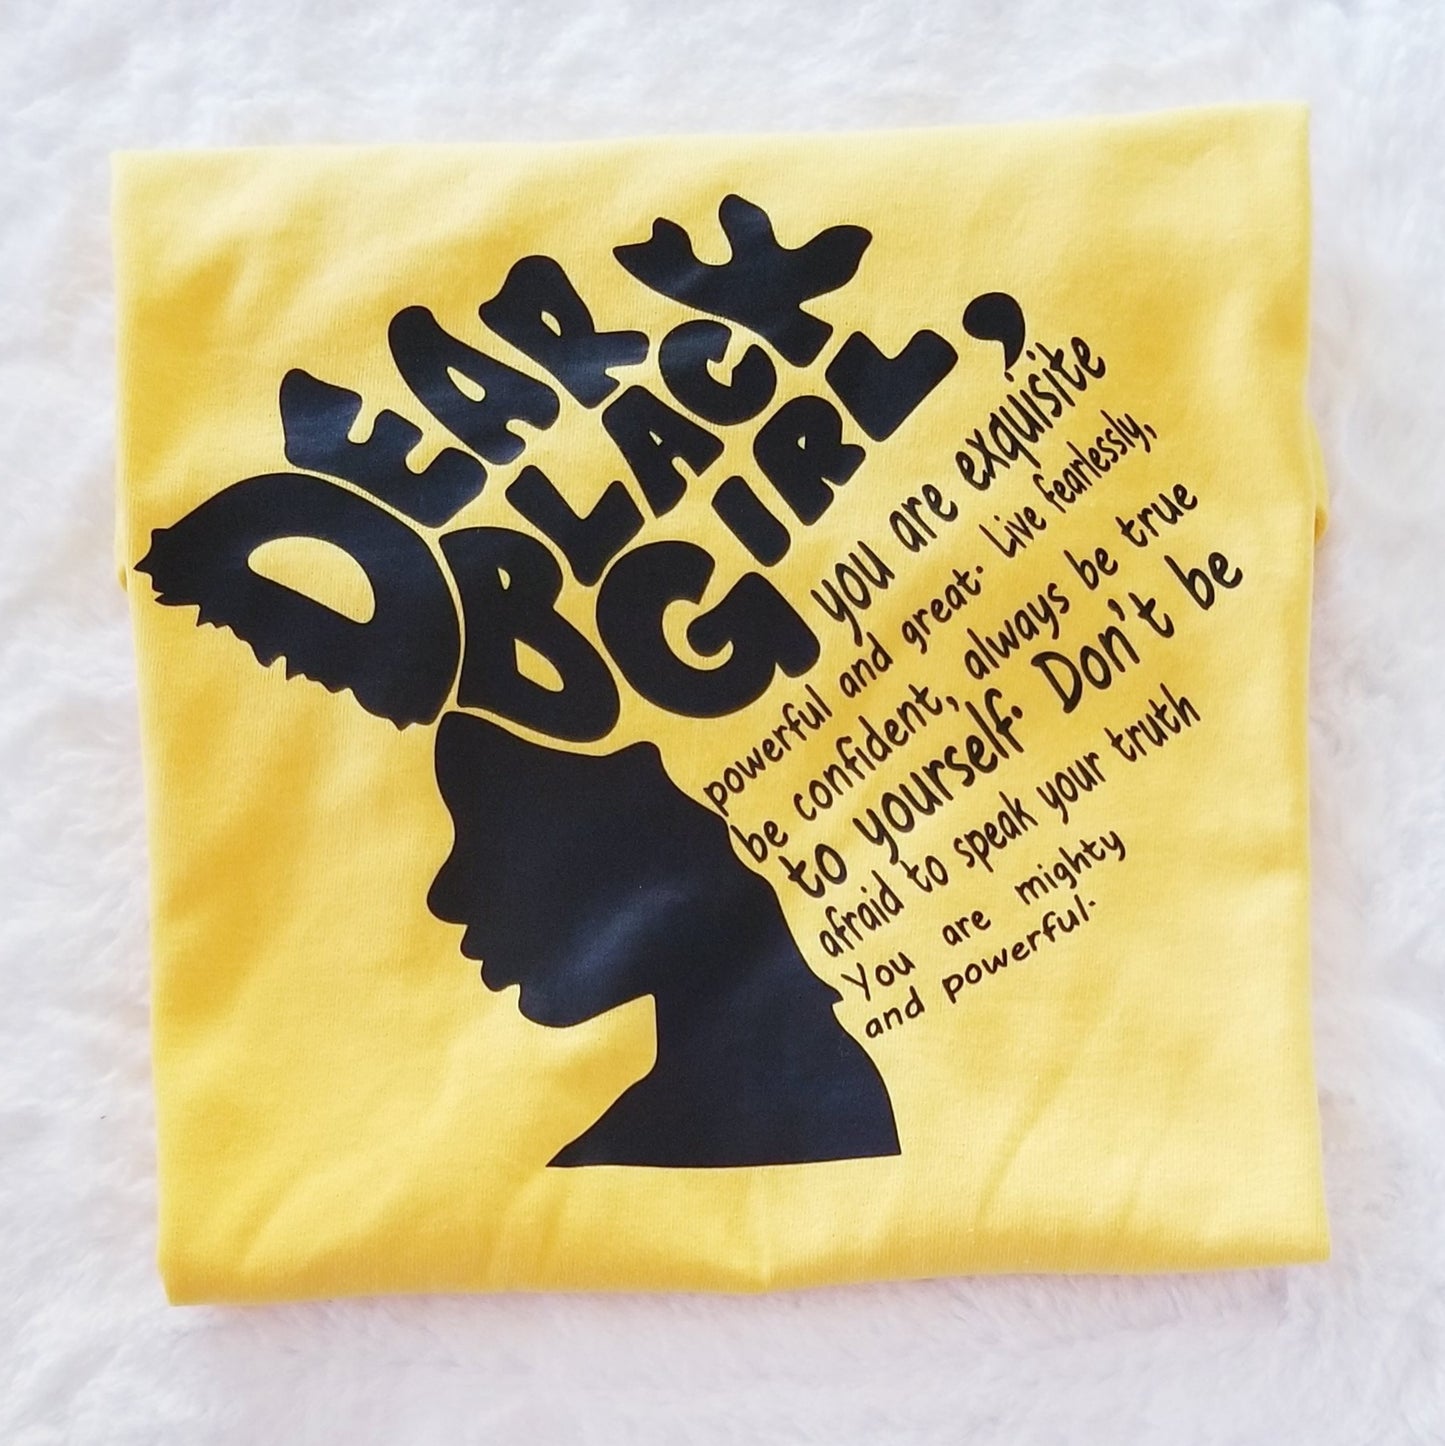 DEAR
BLACK
GIRL,
you are exquisite
powerful and great. Live fearlessly,
be confident, always be true
to yourself. Don't be
afraid to speak your truth
You are mighty
and powerful.